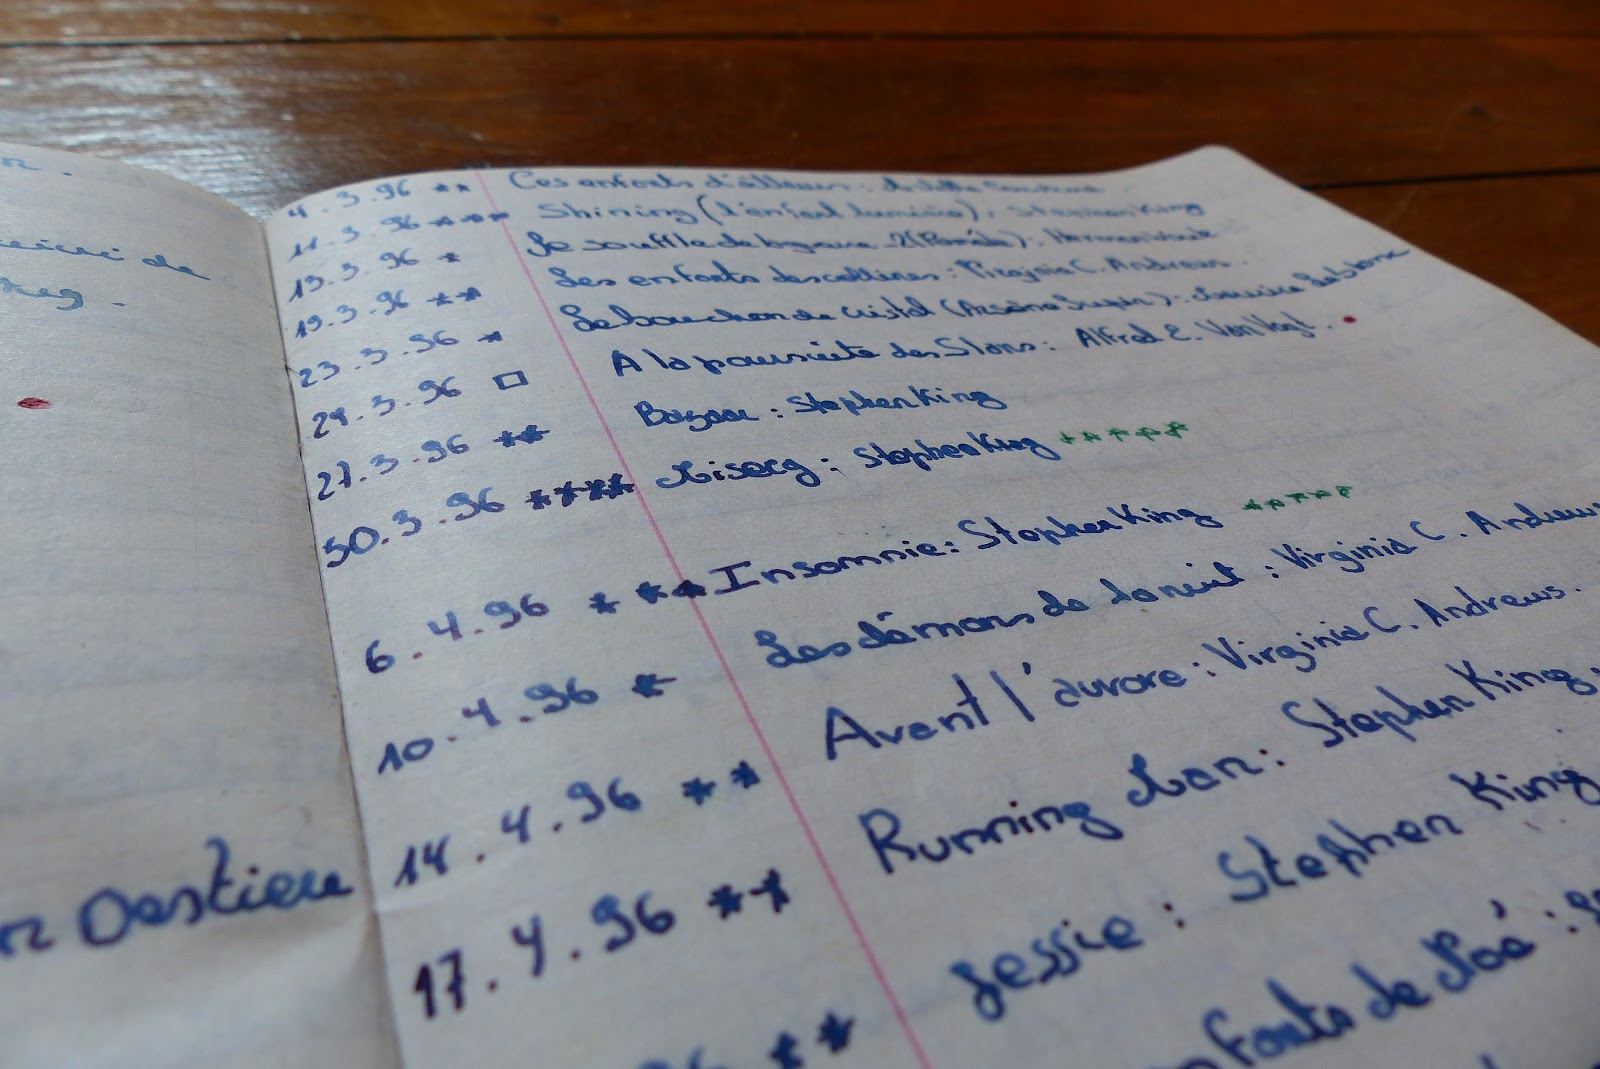 de
Oastieu
4.3.96 ** Ces enfants d'ailleurs :
11.3.96 **** Shining (l'enfant lumière) : Stephen King
13.3.96 * Le souffle de la guerre 2 (Paméla) : Herman Wouk
19.3.96 ** Les enfants des collines : Virginia C. Andrews.
23.3.96 * Le bouchon de cristal (Arsène Lupin) : Maurice Leblanc
24.3.96 □ A la poursuite des Slans : Alfred E. Van Vogt.
27.3.96 ** Bazaar : Stephen King
30.3.96 **** Misery : Stephen King *****
6.4.96 *** Insomnie : Stephen King *****
10.4.96 * Les démons de la nuit : Virginia C. Andrews
14.4.96 ** Avant l'aurore : Virginia C. Andrews.
17.4.96 ** Running Man : Stephen King.
** Jessie : Stephen King
enfants de Noé :